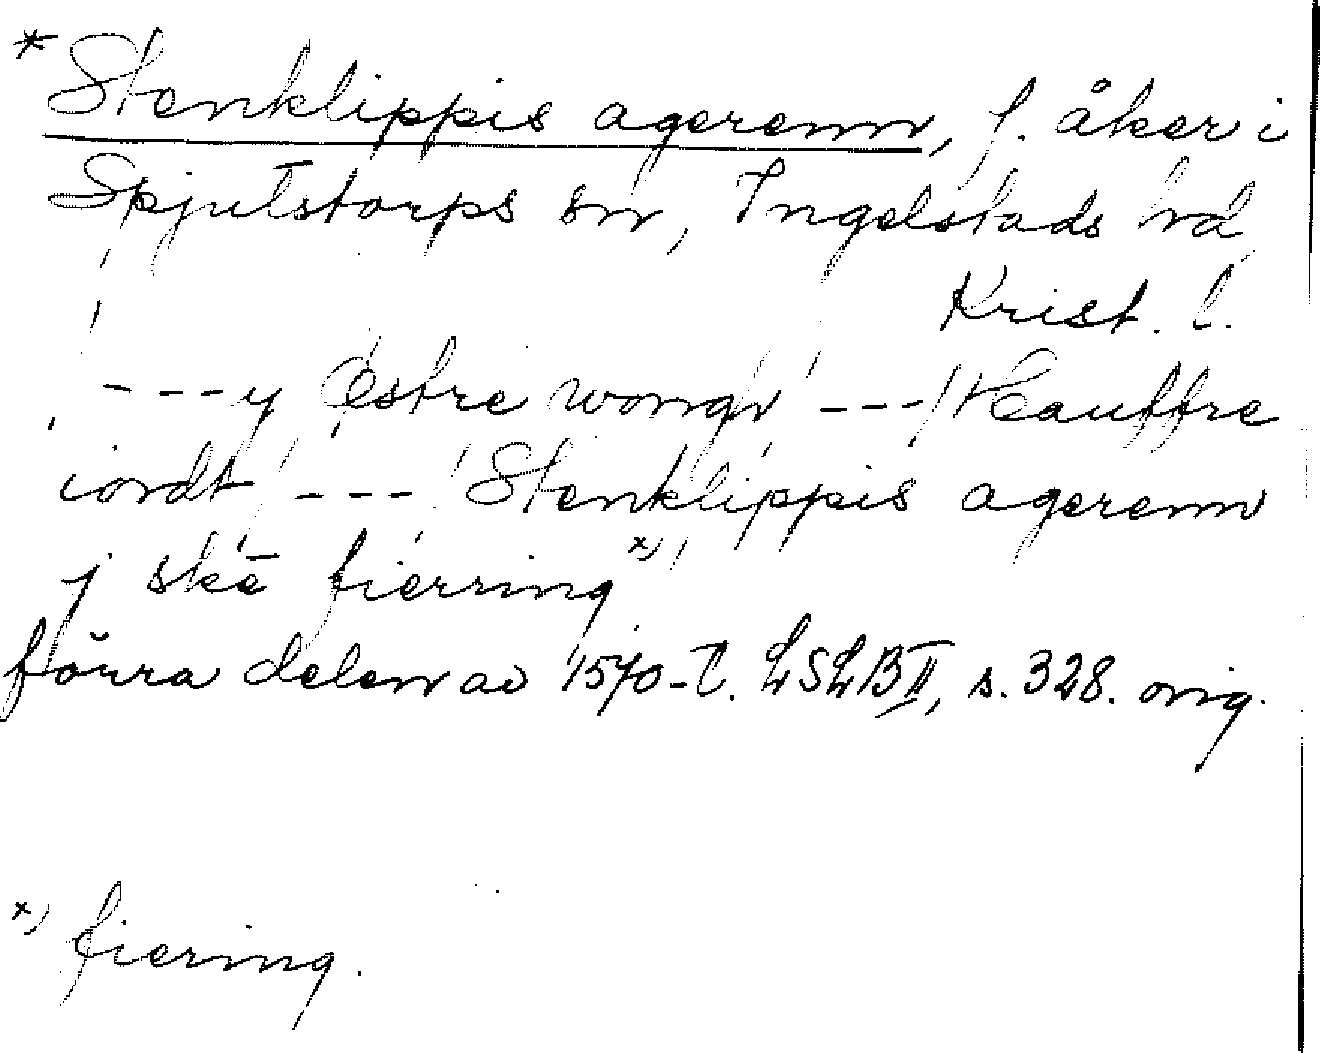 * Stenklippis agerenn, f. åker i
Spjutstorps sn, Ingelstads hd
Krist. l.
---y Østre wongh ---/Kauffre
iordt --- Stenklippis agerenn
j skē fierring x)
förra delen av 1570-t. LSLB II, s. 328. orig.
x) fiering.